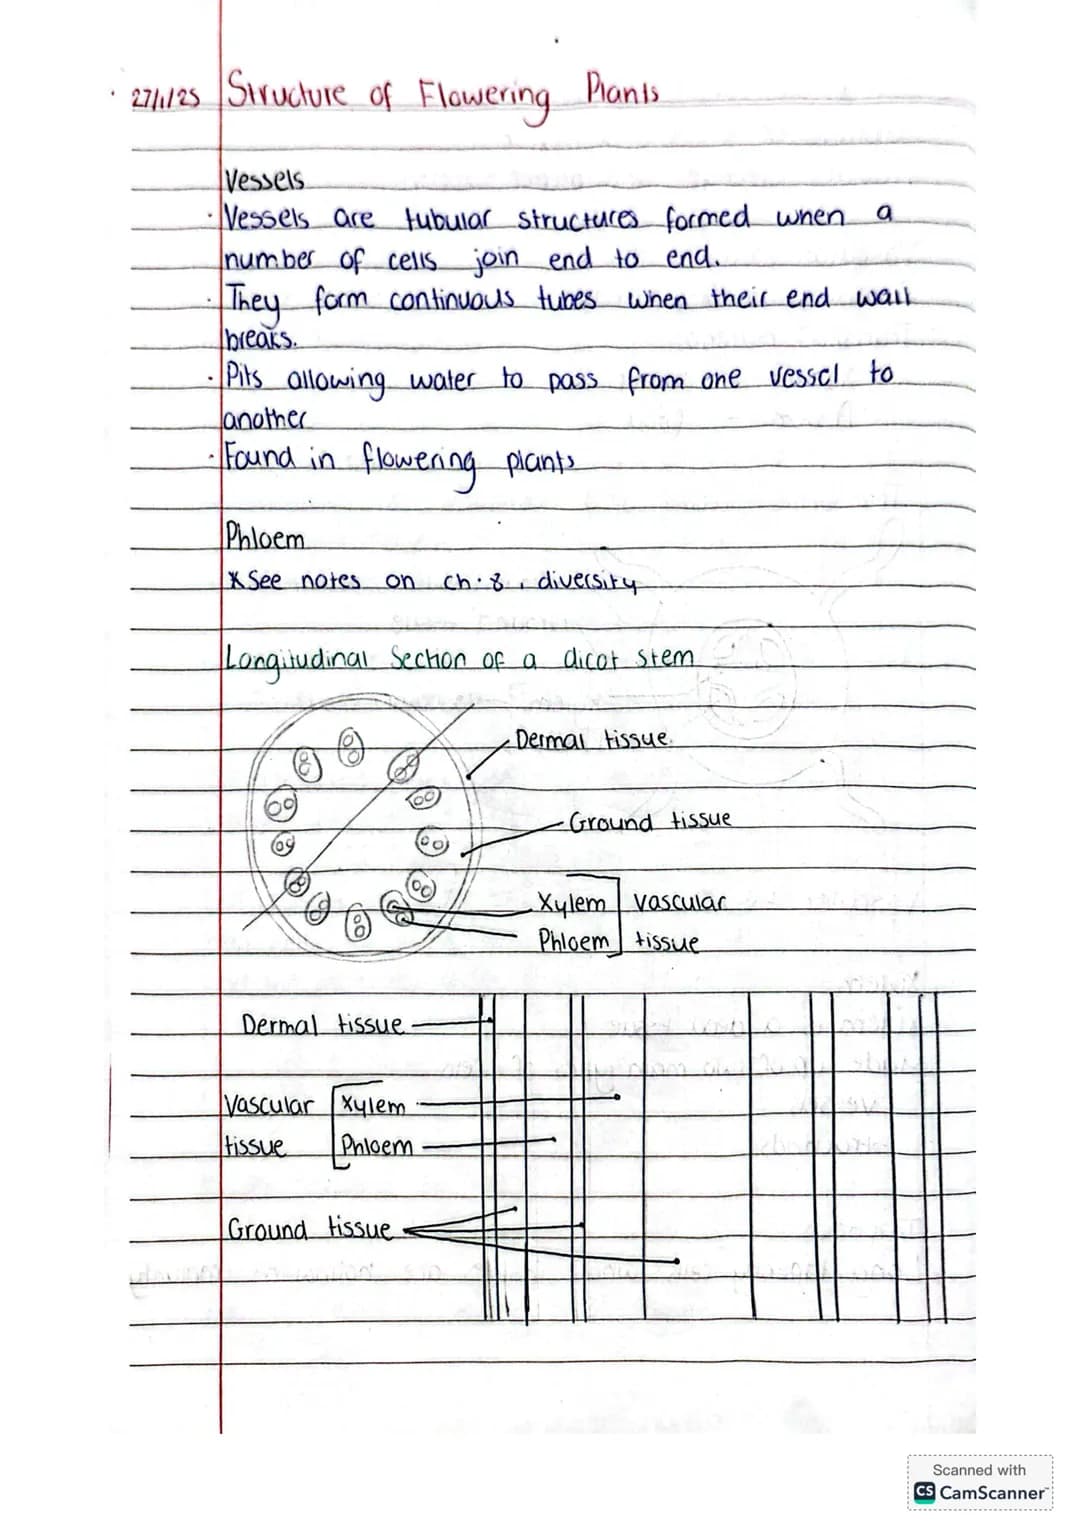 27/1/25 Structure of Flowering Plants
Vessels
· Vessels are tubular structures formed when a
number of cells join end to end.
· They form continuous tubes when their end wall
breaks.
· Pits allowing water to pass from one vessel to
another
· Found in flowering plants
Phloem
* See notes on ch. 8, diversity
Longitudinal Section of a dicot stem
Dermal tissue.
Ground tissue
Xylem vascular
Phloem tissue
Dermal tissue
Vascular Xylem
tissue Phloem
Ground tissue
Scanned with
CS CamScanner